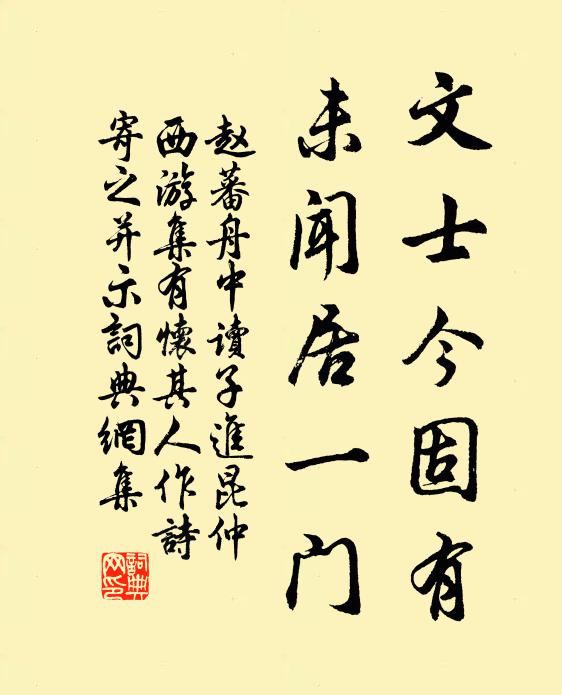 文士今固有
未闻居一门
赵蕃舟中讀子進昆仲
西游集有懷其人作詩
寄之并示詞典網集
詞典网印